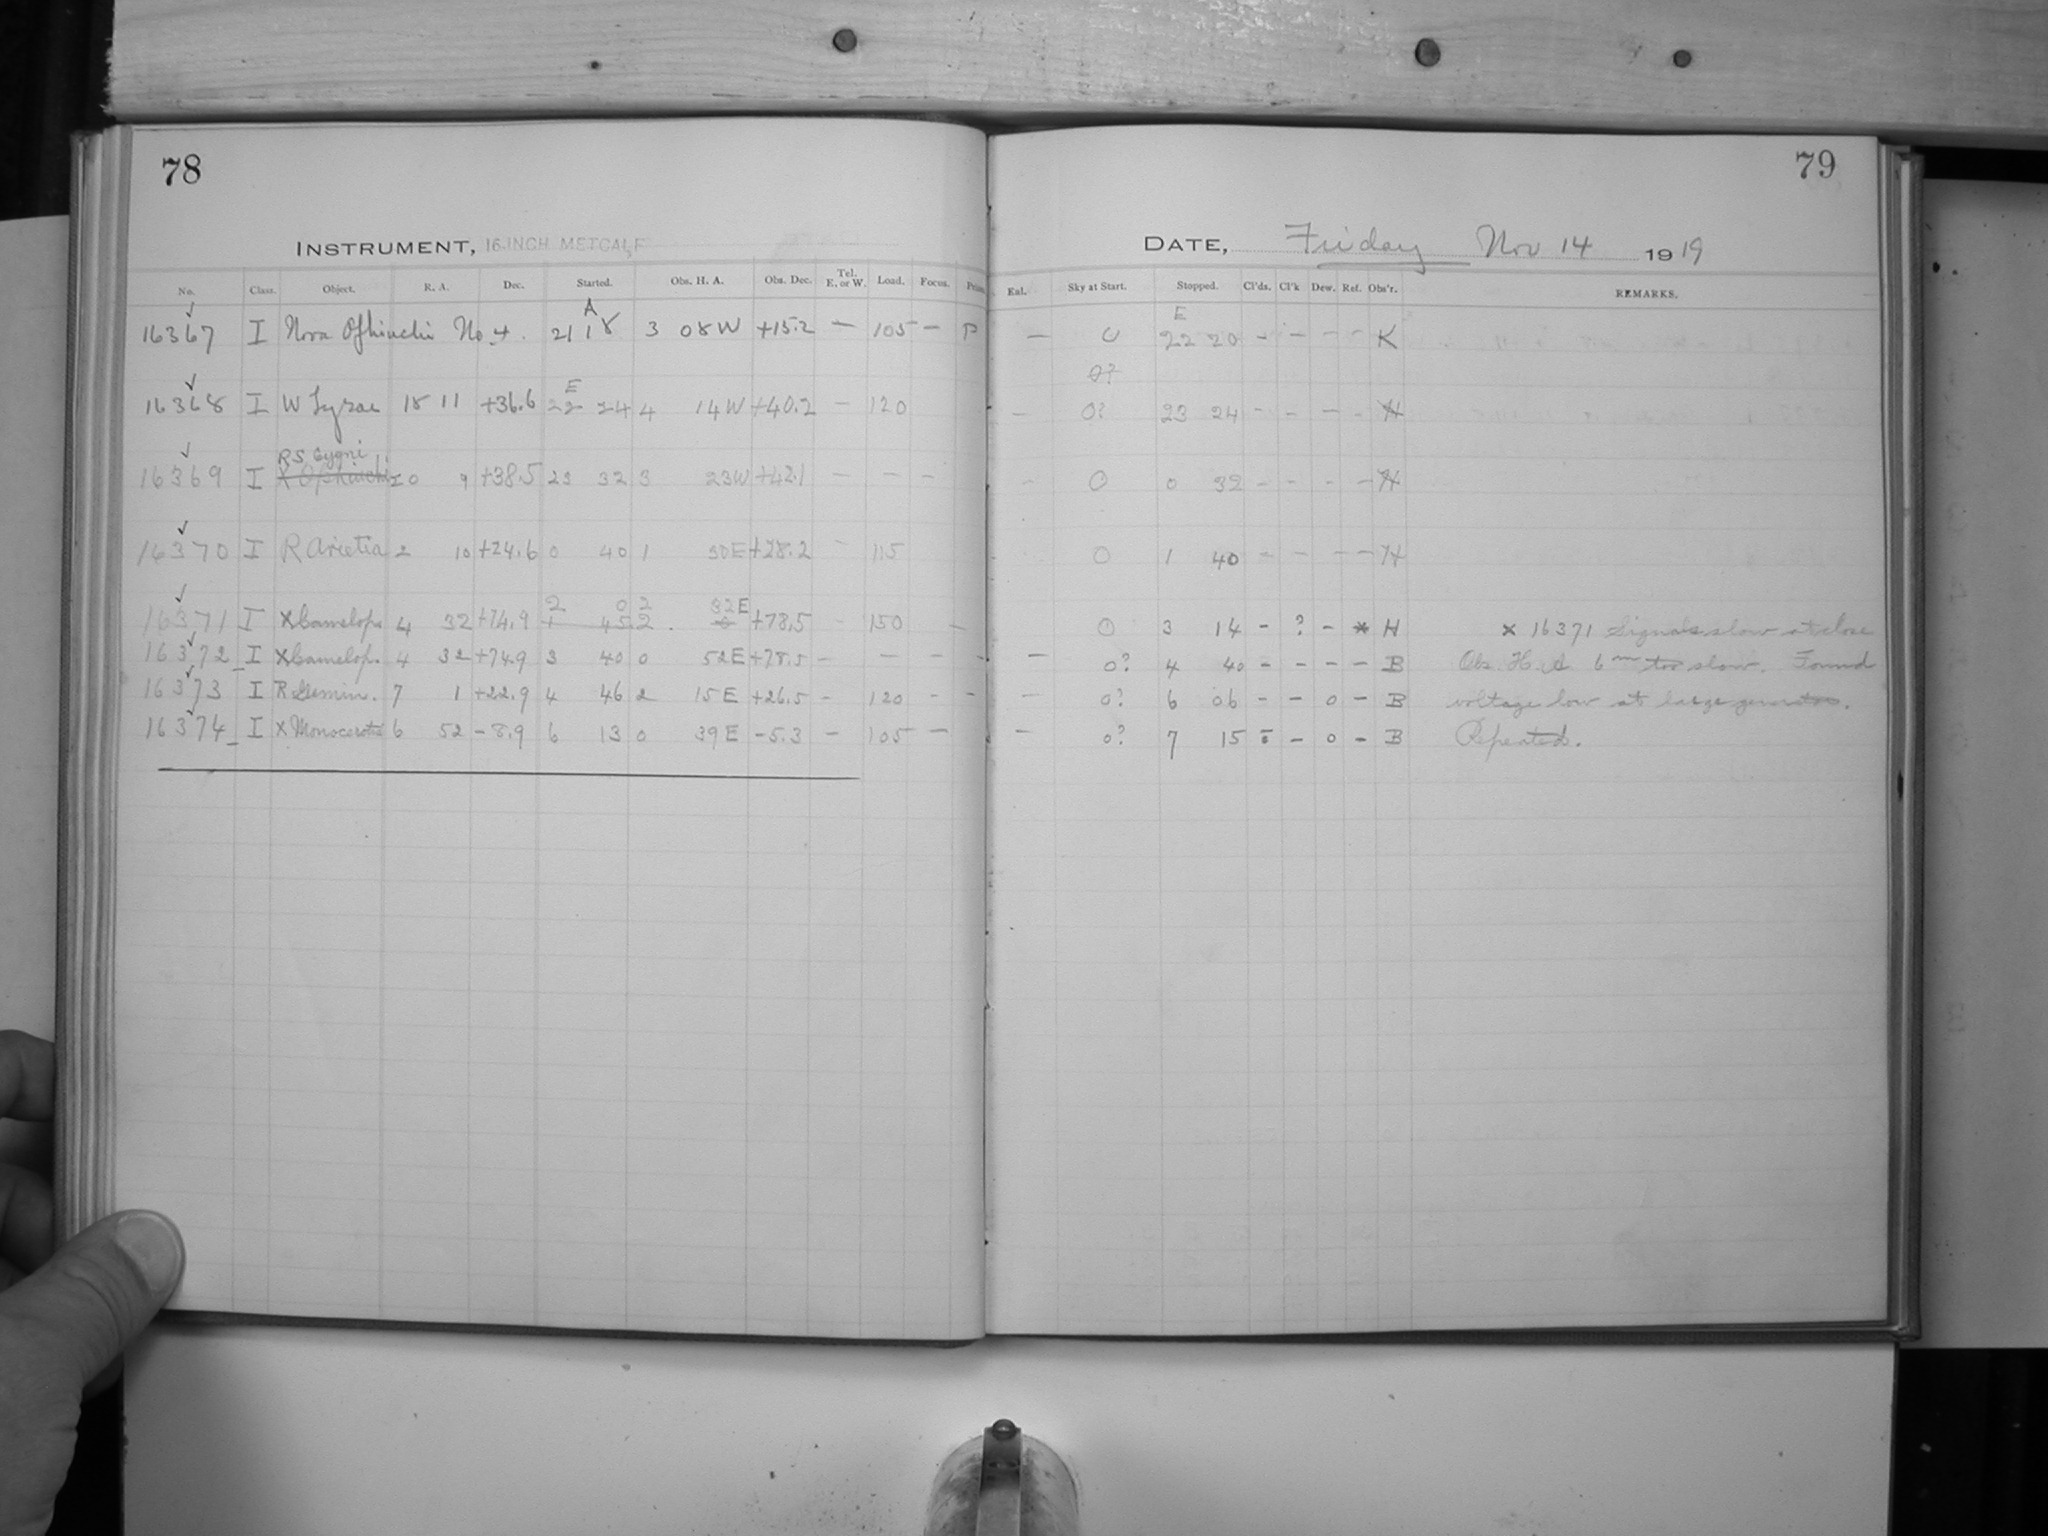 78
INSTRUMENT, 16-INCH METCALF
No. Class. Object. R. A. Dec. Started. Obs. H. A. Obs. Dec. Tel. E. or W. Load. Focus.
A
16367 I Nova Ophiuchi No. 4. 21 18 3 08 W +15.2 — 105 — P
E
16368 I W Lyrae 18 11 +36.6 22 24 4 14 W +40.2 — 120
RS Cygni
16369 I X Ophiuchi 20 9 +38.5 23 32 3 23 W +42.1 — — —
16370 I R Arietis 2 10 +24.6 0 40 1 30 E +28.2 — 115
2 0 2 32 E
16371 I X Camelop. 4 32 +74.9 1 45 2 0 +78.5 — 150 —
16372 I X Camelop. 4 32 +74.9 3 40 0 52 E +78.5 — — — —
16373 I R Gemin. 7 1 +22.9 4 46 2 15 E +26.5 — 120 — —
16374 I X Monocerotis 6 52 -8.9 6 13 0 39 E -5.3 — 105 —
79
DATE, Friday Nov 14 1919
Exl. Sky at Start. Stopped. Cl'ds. Cl'k Dew. Ref. Obs'r. REMARKS.
E
— 0 22 20 - - - - K
0?
— 0? 23 24 - - - - H
- 0 0 32 - - - - H
0 1 40 - - - - H
0 3 14 - ? - * H x 16371 Signals slow at close
— 0? 4 40 - - - - B Obs. H. A. 6m too slow. Found
— 0? 6 06 - - 0 - B voltage low at large generator.
— 0? 7 15 - - 0 - B Repeated.